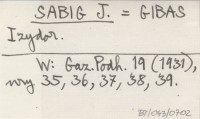 SABIG J. = GIBAS
Izydor.
W: Gaz. Podh. 19 (1931),
nry 35, 36, 37, 38, 39.